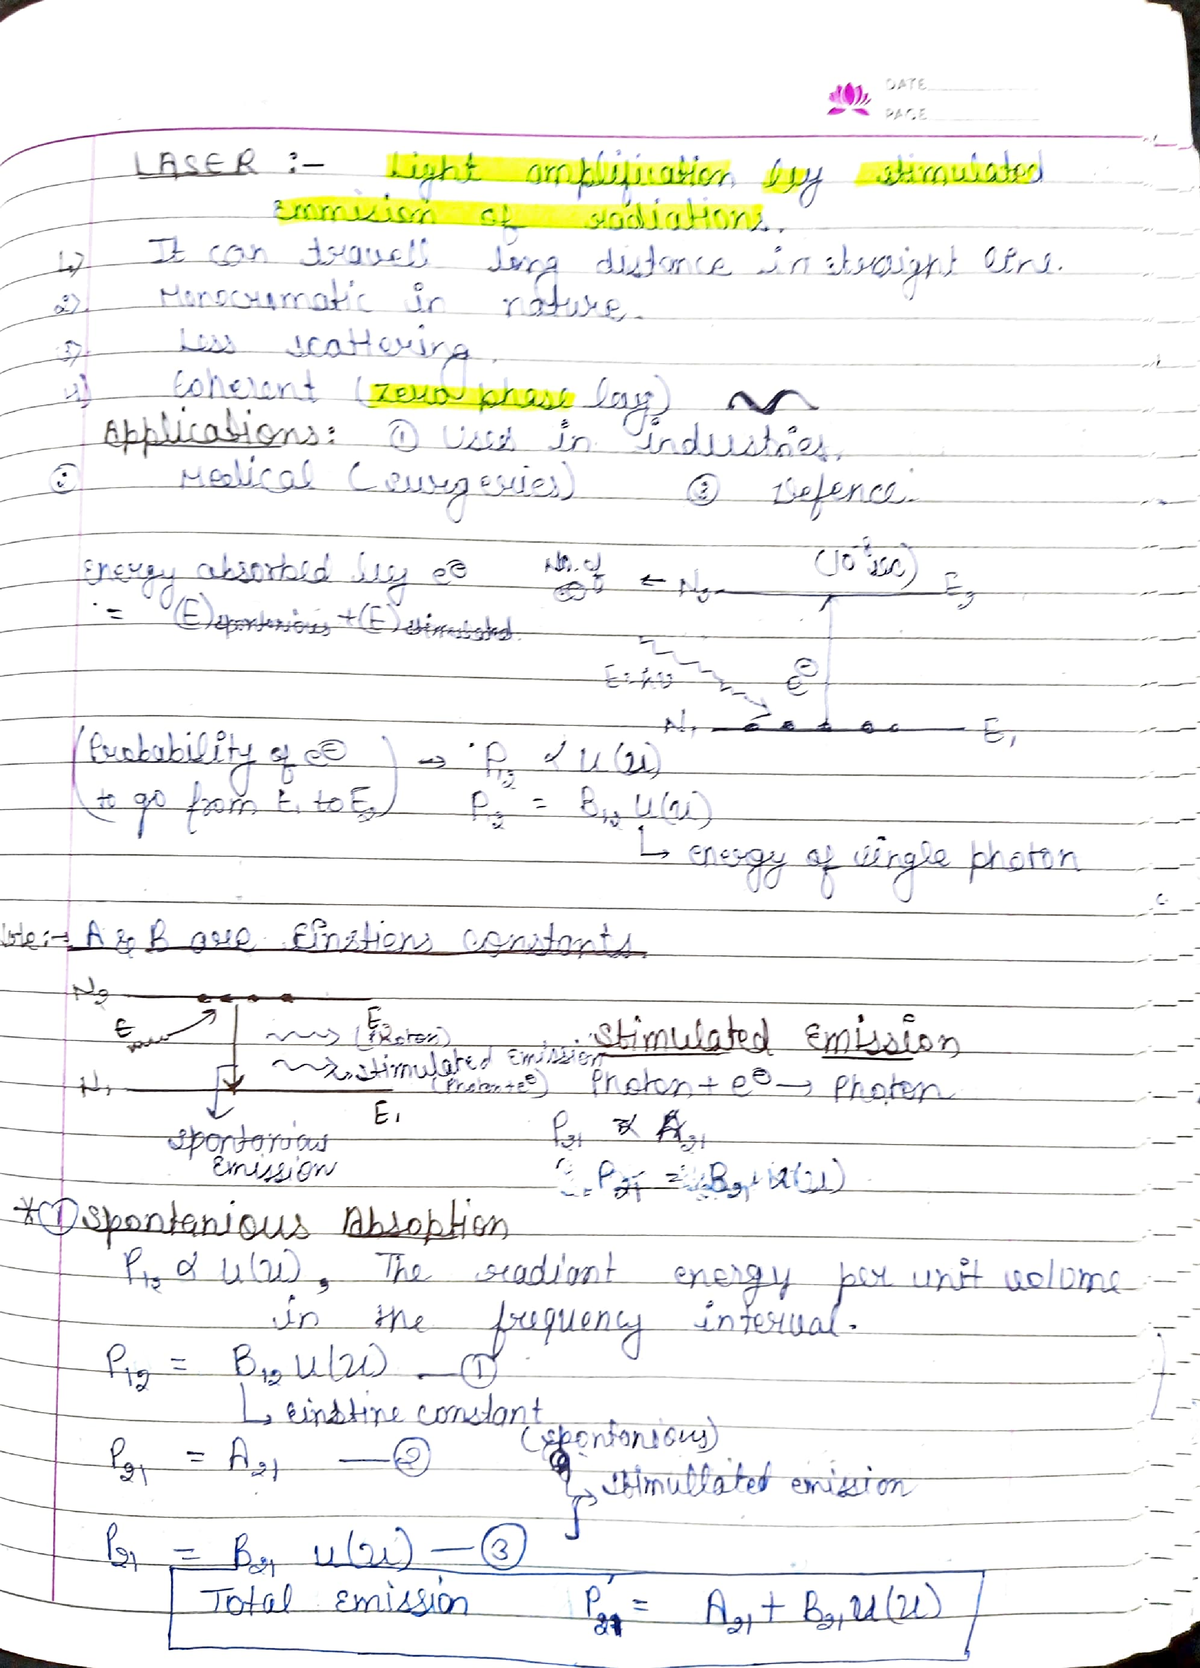 DATE
PAGE
LASER :- Light amplification by stimulated
Emmision of radiations.
1.) It can travell long distance in straight line.
2). Monocromatic in nature.
3). Less scattering.
4) Coherent (zero phase lag)
Applications: ① Used in industries.
② Medical (surgeries) ③ Defence.
Energy absorbed by e⊖
= (E)spontanious + (E)stimulated
No. of e⊖ ← N₂ (10⁻⁸ sec) E₂
E=hν e⊖
N₁ E₁
(Probability of e⊖ to go from E₁ to E₂) → P₁₂ ∝ u(ν)
P₁₂ = B₁₂ u(ν)
↳ energy of single photon
Note:→ A & B are Einstiens constants.
N₂ E₂
E (Photon) Stimulated Emission
stimulated Emission
N₁ (Photon+e⊖) Photon + e⊖ → Photon
E₁
spontanious P₂₁ ∝ A₂₁
Emission P₂₁ = B₂₁ u(ν)
* ① Spontanious Absoption
P₁₂ ∝ u(ν), The radiant energy per unit volume
in the frequency interval.
P₁₂ = B₁₂ u(ν) — ①
↳ einstine constant
P₂₁ = A₂₁ — ② (spontanious)
↳ stimullated emission
P₂₁ = B₂₁ u(ν) — ③
Total Emission P₂₁ = A₂₁ + B₂₁ u(ν)